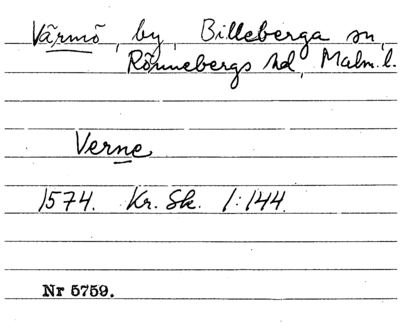 Värmö, by, Billeberga sn,
Rönnebergs hd, Malm. l.
Verne
1574. Kr. Sk. 1:144.
Nr 5759.